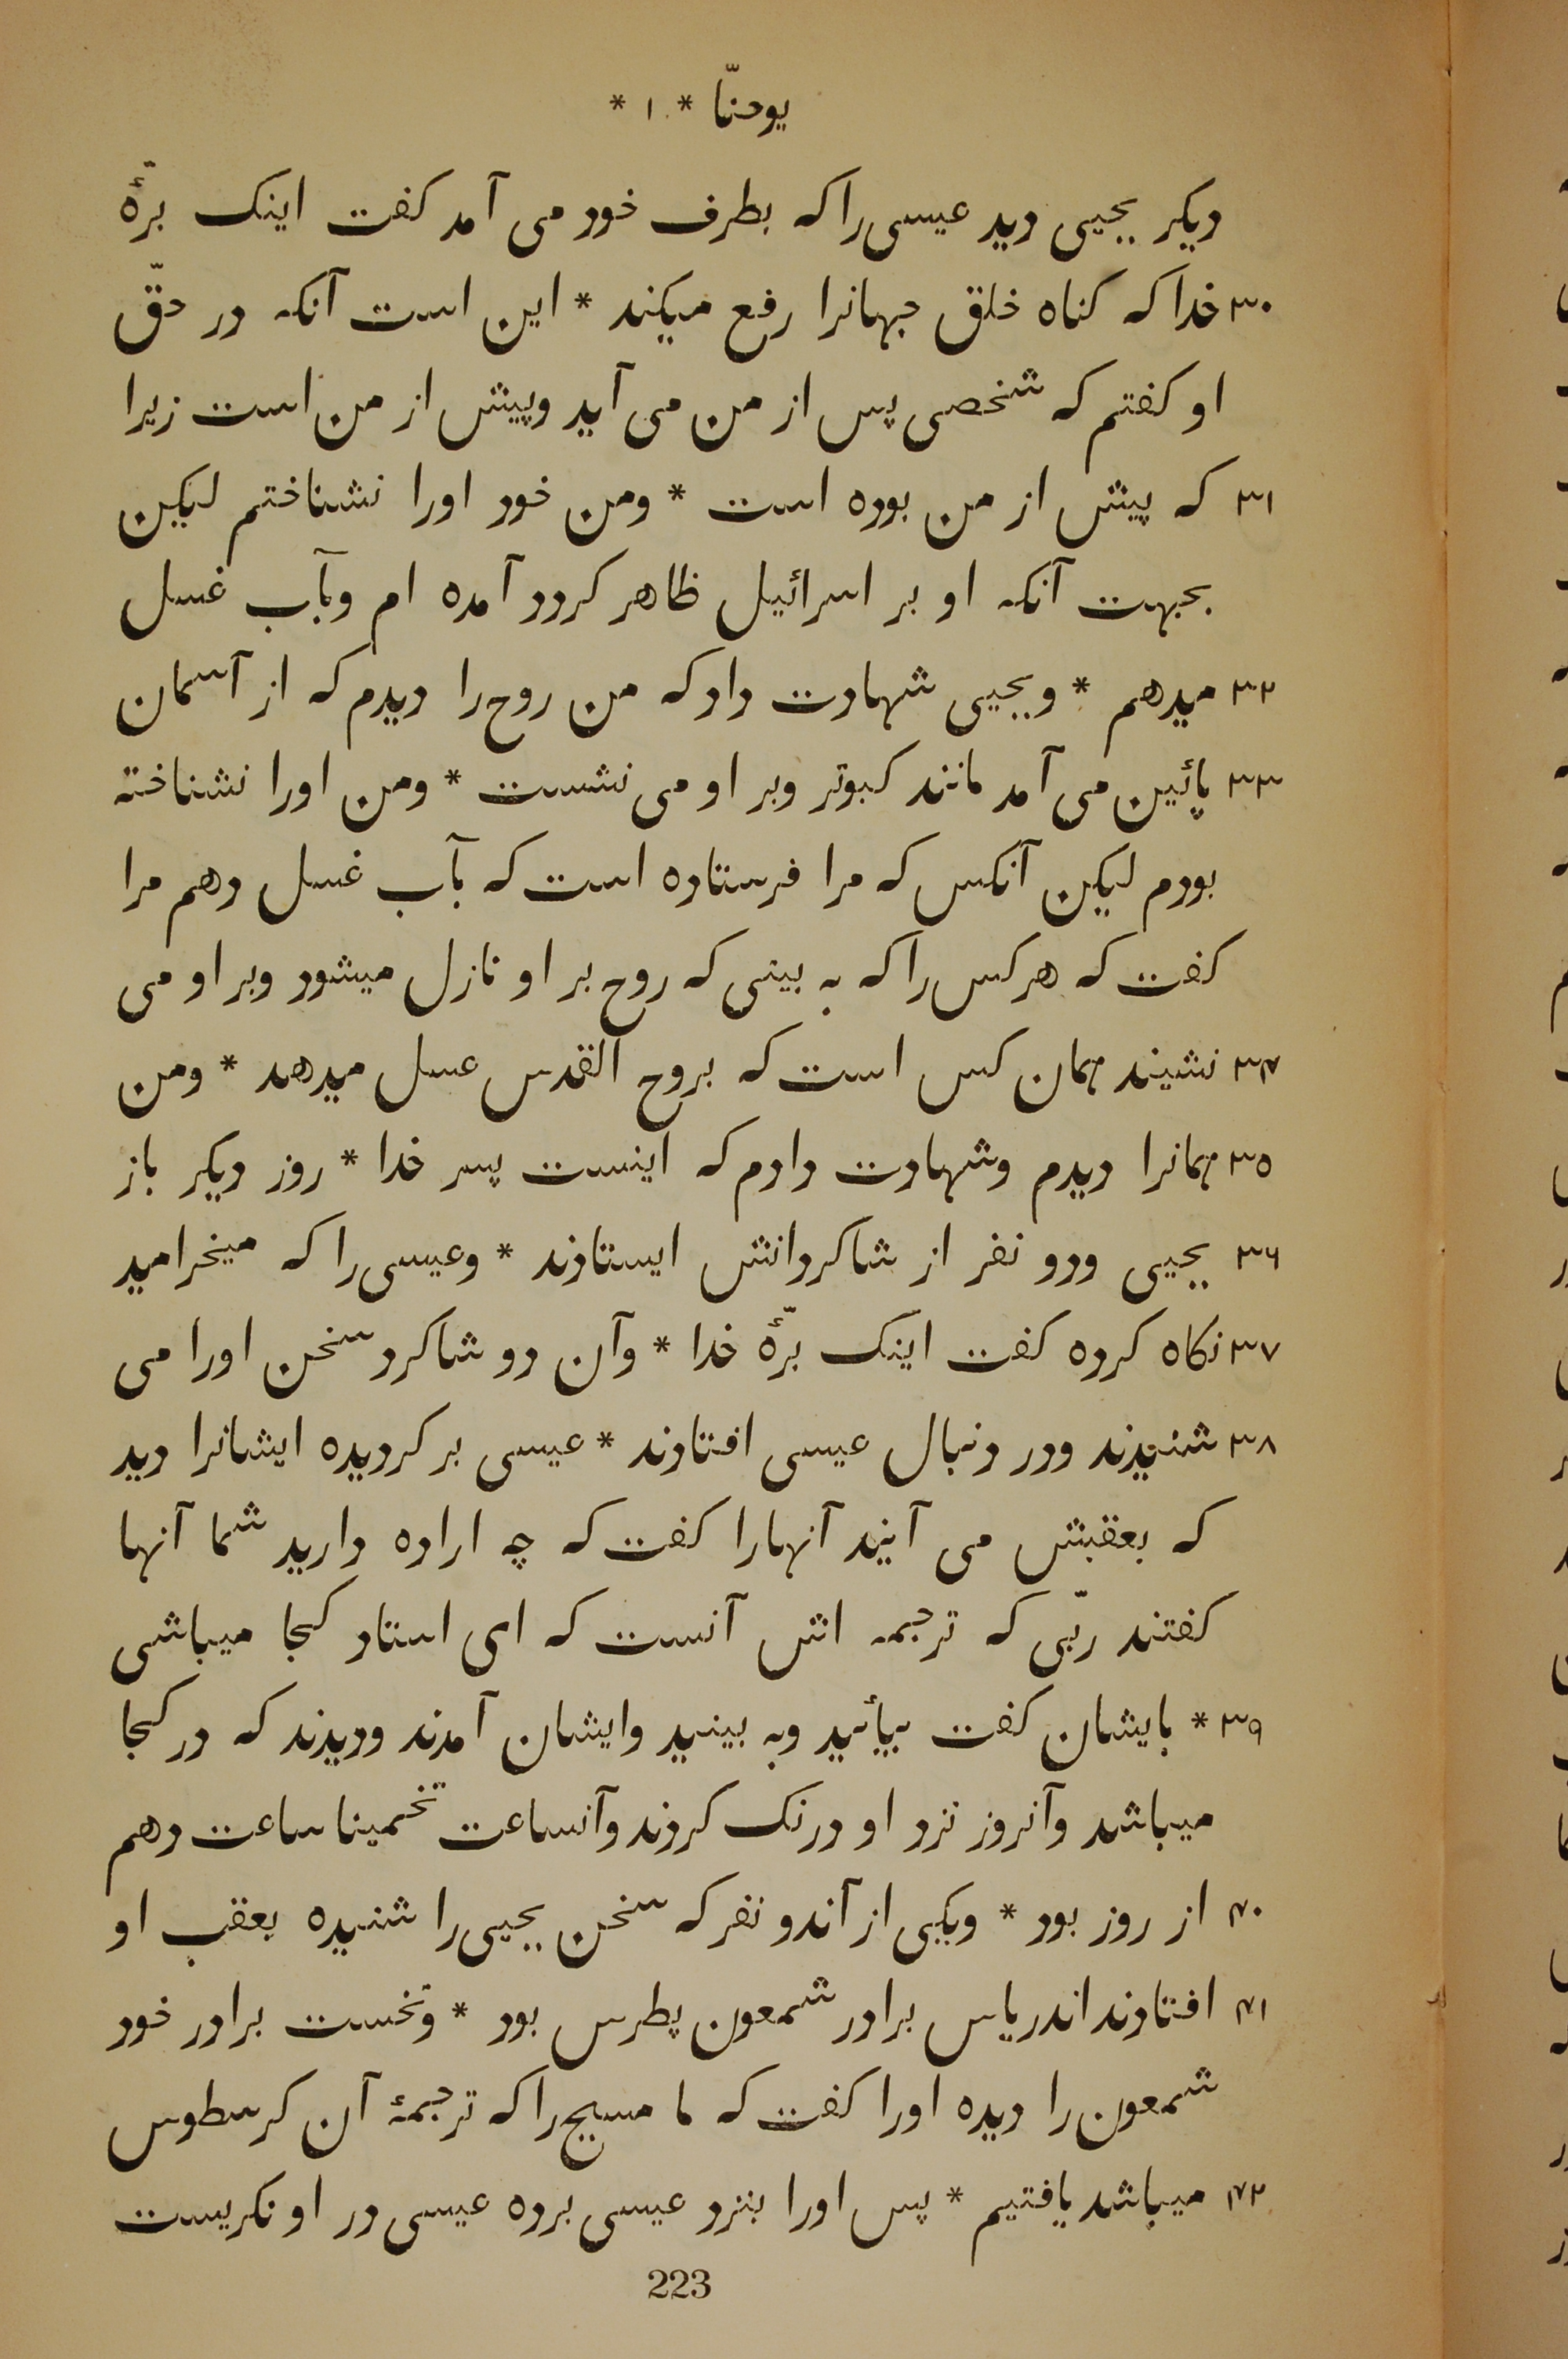 یوحنّا * ۱ *
دیکر یحیی دید عیسی را که بطرف خود می آمد کفت اینک برّهٔ
۳۰ خدا که کناه خلق جهانرا رفع میکند * این است آنکه در حقّ
او کفتم که شخصی پس از من می آید وپیش از من است زیرا
۳۱ که پیش از من بوده است * ومن خود اورا نشناختم لیکن
بجهت آنکه او بر اسرائیل ظاهر کردد آمده ام وبآب غسل
۳۲ میدهم * ویحیی شهادت داد که من روح را دیدم که از آسمان
۳۳ پائین می آمد مانند کبوتر وبر او می نشست * ومن اورا نشناخته
بودم لیکن آنکس که مرا فرستاده است که بآب غسل دهم مرا
کفت که هرکس را که به بینی که روح بر او نازل میشود وبر او می
۳۴ نشیند همان کس است که بروح القدس عسل میدهد * ومن
۳۵ همانرا دیدم وشهادت دادم که اینست پسر خدا * روز دیکر باز
۳۶ یحیی ودو نفر از شاکردانش ایستادند * وعیسی را که میخرامید
۳۷ نکاه کرده کفت اینک برّهٔ خدا * وآن دو شاکرد سخن اورا می
۳۸ شنیدند ودر دنبال عیسی افتادند * عیسی بر کردیده ایشانرا دید
که بعقبش می آیند آنهارا کفت که چه اراده دارید شما آنها
کفتند ربّی که ترجمه اش آنست که ای استاد کجا میباشی
۳۹ * بایشان کفت بیأئید وبه بینید وایشان آمدند ودیدند که در کجا
میباشد وآنروز نزد او درنک کردند وآنساعت تخمینا ساعت دهم
۴۰ از روز بود * ویکی از آندو نفر که سخن یحیی را شنیده بعقب او
۴۱ افتادند اندریاس برادر شمعون پطرس بود * ونخست برادر خود
شمعون را دیده اورا کفت که ما مسیح را که ترجمهٔ آن کرسطوس
۴۲ میباشد یافتیم * پس اورا بنزد عیسی برده عیسی در او نکریست
223